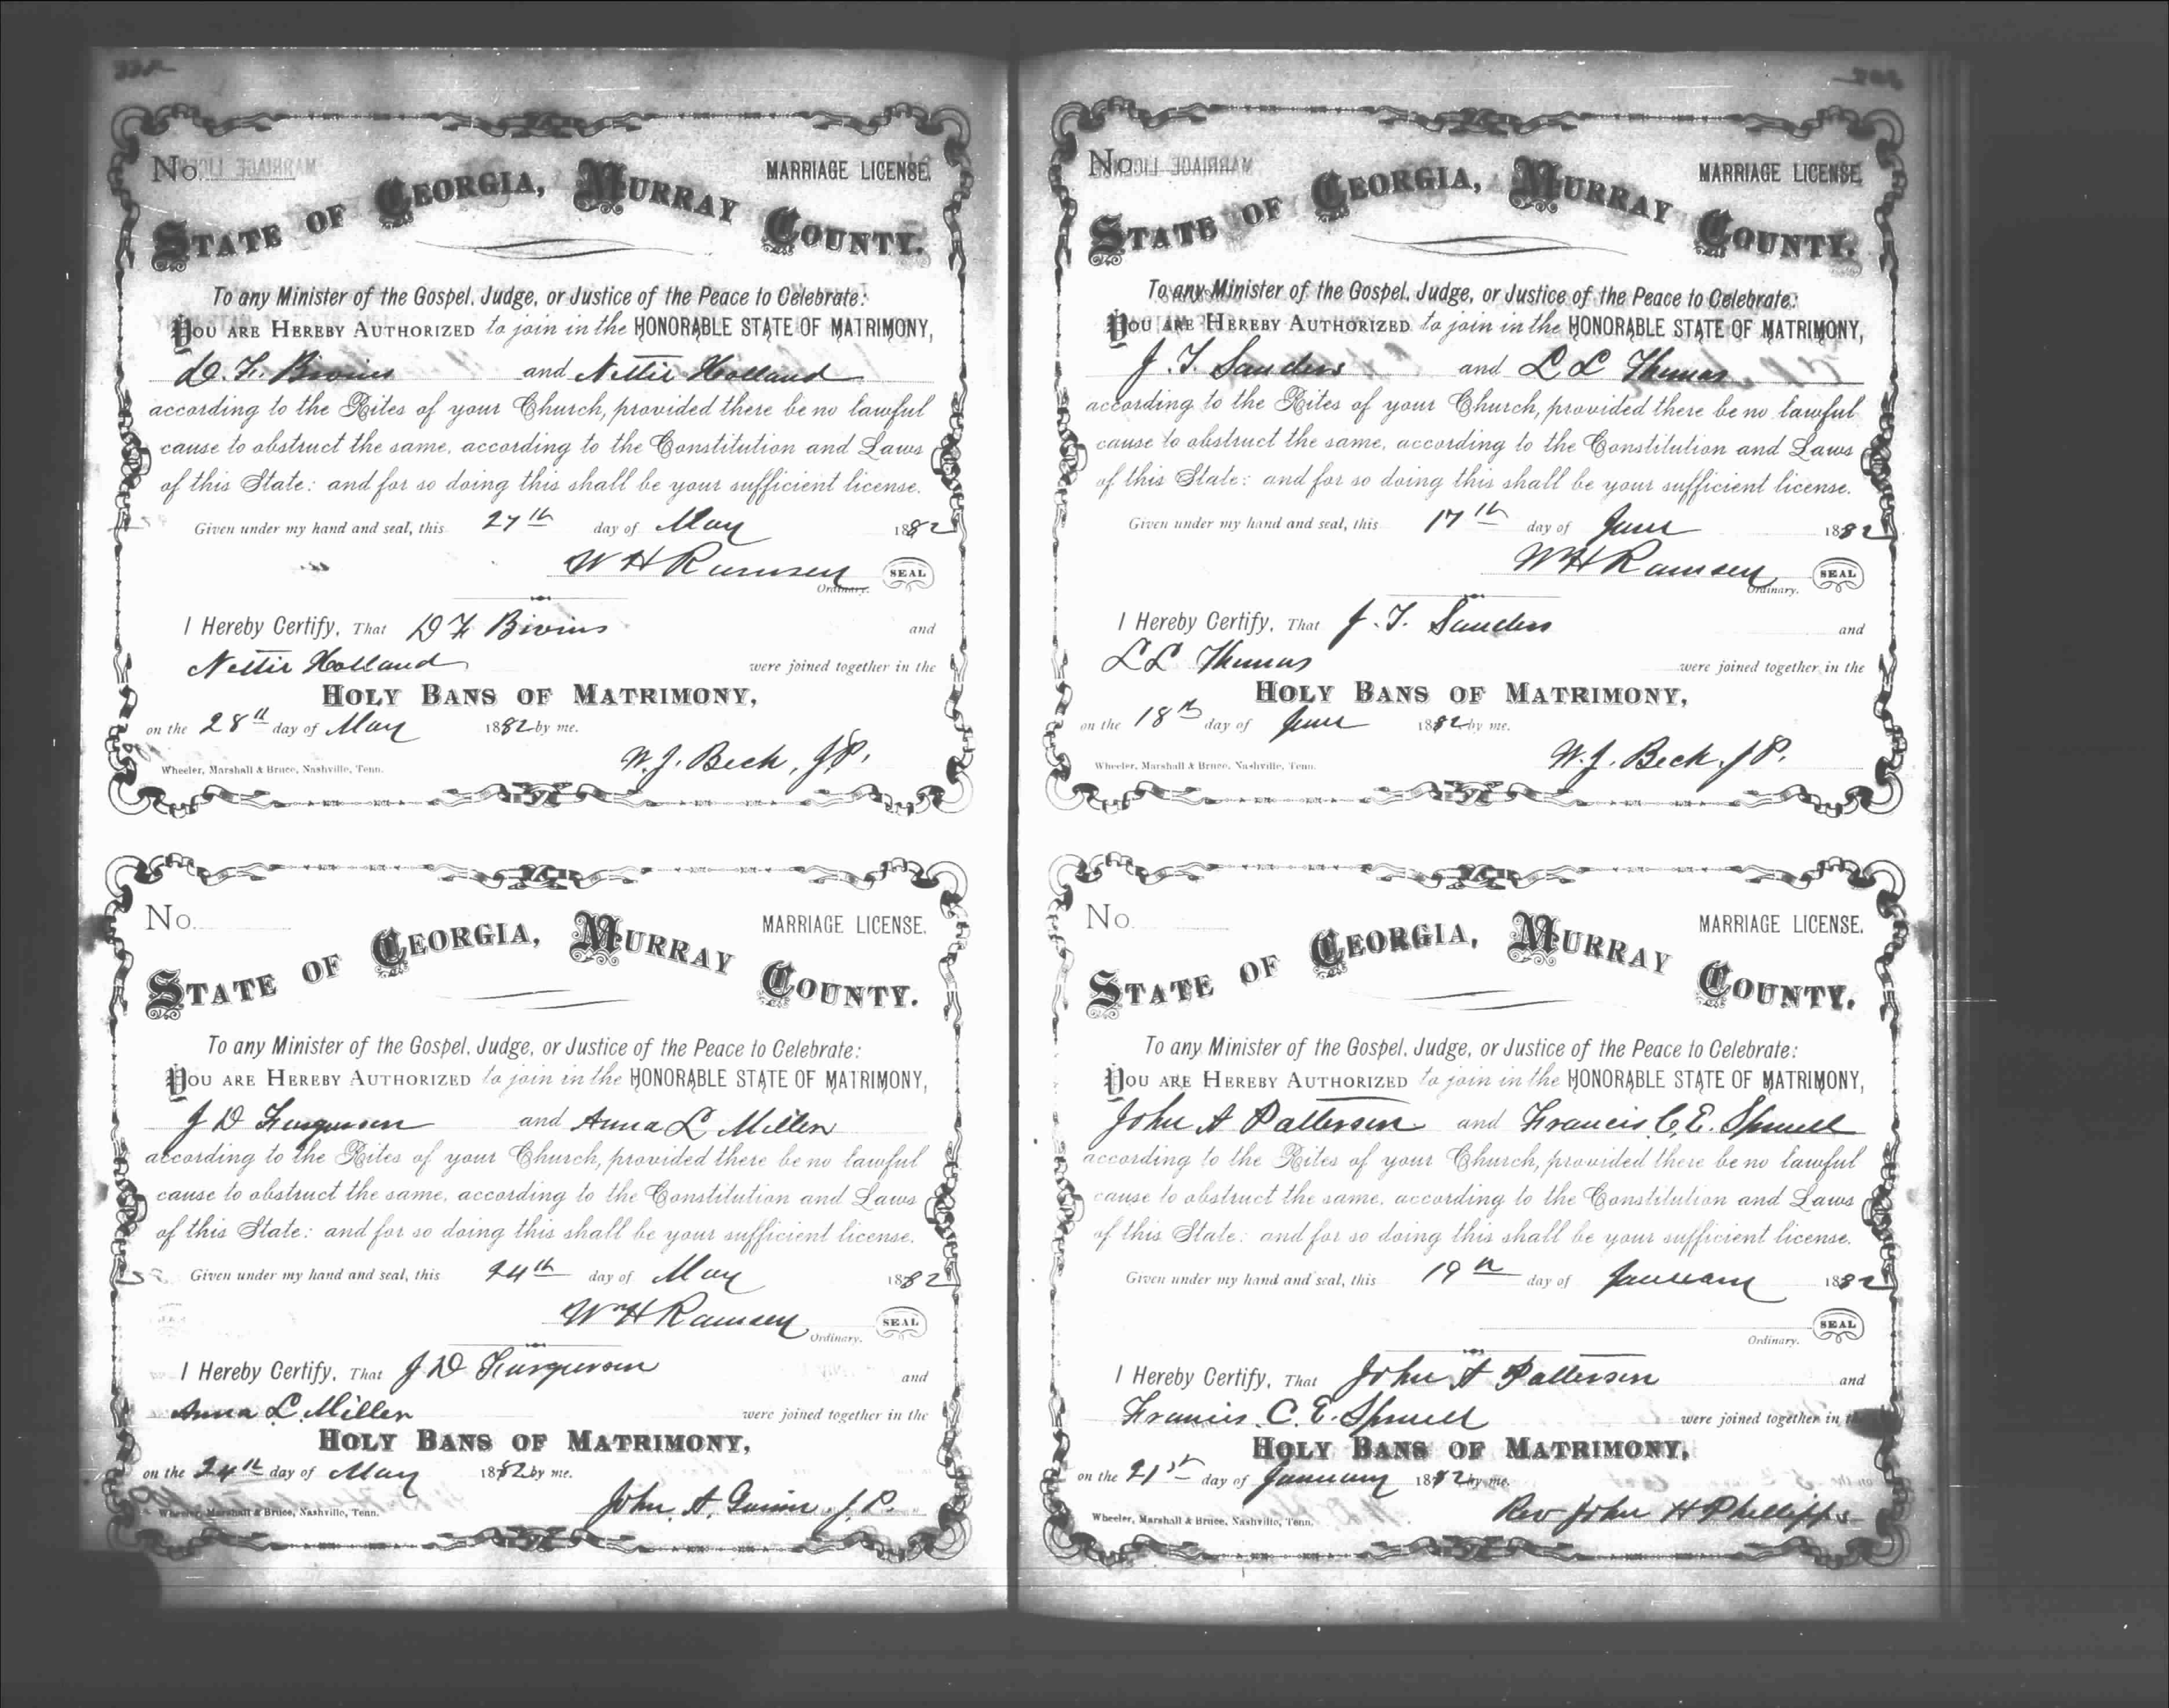 No.
MARRIAGE LICENSE.
STATE OF GEORGIA, MURRAY COUNTY.
To any Minister of the Gospel, Judge, or Justice of the Peace to Celebrate:
YOU ARE HEREBY AUTHORIZED to join in the HONORABLE STATE OF MATRIMONY,
D. F. Bivins and Nettie Holland
according to the Rites of your Church, provided there be no lawful
cause to obstruct the same, according to the Constitution and Laws
of this State: and for so doing this shall be your sufficient license.
Given under my hand and seal, this 27th day of May 1882
W H Ramsey SEAL
Ordinary.
I Hereby Certify, That D F Bivins and
Nettie Holland were joined together in the
HOLY BANS OF MATRIMONY,
on the 28th day of May 1882 by me.
W. J. Beck, J.P.
Wheeler, Marshall & Bruce, Nashville, Tenn.
No.
MARRIAGE LICENSE.
STATE OF GEORGIA, MURRAY COUNTY.
To any Minister of the Gospel, Judge, or Justice of the Peace to Celebrate:
YOU ARE HEREBY AUTHORIZED to join in the HONORABLE STATE OF MATRIMONY,
J D Furgerson and Anna L Miller
according to the Rites of your Church, provided there be no lawful
cause to obstruct the same, according to the Constitution and Laws
of this State: and for so doing this shall be your sufficient license.
Given under my hand and seal, this 24th day of May 1882
Wm H Ramsey SEAL
Ordinary.
I Hereby Certify, That J D Furgerson and
Anna L. Miller were joined together in the
HOLY BANS OF MATRIMONY,
on the 24th day of May 1882 by me.
John A. J. P.
Wheeler, Marshall & Bruce, Nashville, Tenn.
No.
MARRIAGE LICENSE.
STATE OF GEORGIA, MURRAY COUNTY.
To any Minister of the Gospel, Judge, or Justice of the Peace to Celebrate:
YOU ARE HEREBY AUTHORIZED to join in the HONORABLE STATE OF MATRIMONY,
J. T. Sanders and L L Thomas
according to the Rites of your Church, provided there be no lawful
cause to obstruct the same, according to the Constitution and Laws
of this State: and for so doing this shall be your sufficient license.
Given under my hand and seal, this 17th day of June 1882
Wm H Ramsey SEAL
Ordinary.
I Hereby Certify, That J. T. Sanders and
L L Thomas were joined together in the
HOLY BANS OF MATRIMONY,
on the 18th day of June 1882 by me.
W. J. Beck, J P.
Wheeler, Marshall & Bruce, Nashville, Tenn.
No.
MARRIAGE LICENSE.
STATE OF GEORGIA, MURRAY COUNTY.
To any Minister of the Gospel, Judge, or Justice of the Peace to Celebrate:
YOU ARE HEREBY AUTHORIZED to join in the HONORABLE STATE OF MATRIMONY,
John A Patterson and Francis C. E. Spruell
according to the Rites of your Church, provided there be no lawful
cause to obstruct the same, according to the Constitution and Laws
of this State: and for so doing this shall be your sufficient license.
Given under my hand and seal, this 19th day of January 1882
SEAL
Ordinary.
I Hereby Certify, That John A Patterson and
Francis C. E. Spruell were joined together in the
HOLY BANS OF MATRIMONY,
on the 21st day of January 1882 by me.
Rev John H Phillipps
Wheeler, Marshall & Bruce, Nashville, Tenn.